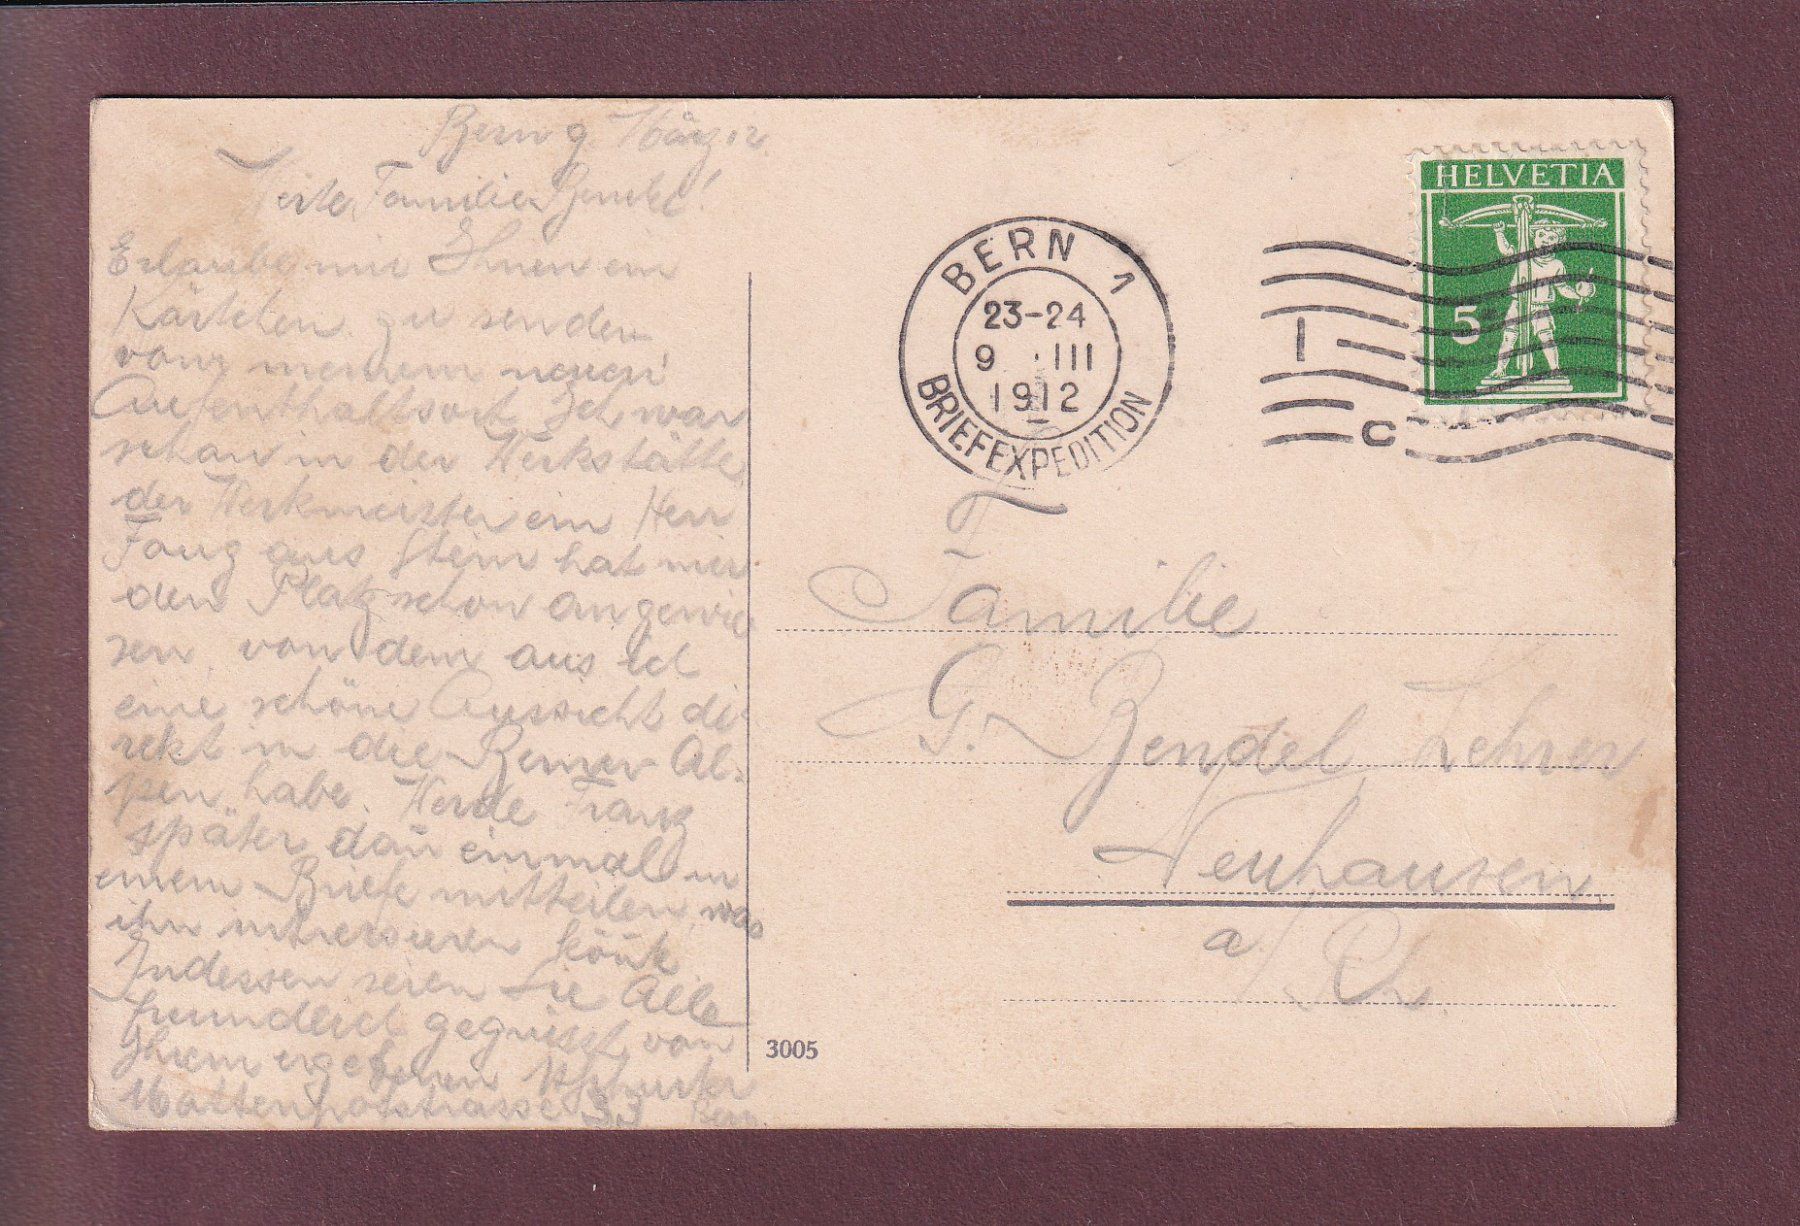 Bern 9. März 12.
Werte Familie Bendel!
Erlaube mir Ihnen ein
Kärtchen zu senden
von meinem neuen
Aufenthaltsort. Ich war
schon in der Werkstätte
der Werkmeister ein Herr
aus Stein hat mir
den Platz schon angewie
sen, von dem aus ich
eine schöne Aussicht di-
rekt in die Berner Al-
pen habe. Werde Franz
später dañ einmal in
einem Briefe mitteilen was
ihn köñt.
Indessen seien Sie Alle
freundlich gegrüsst von
Ihrem ergebenen
33 Bern
HELVETIA
5
BERN 1
23-24
9 . III
1912
BRIEFEXPEDITION
I
C
Familie
G. Bendel Lehrer
Neuhausen
a/Rh.
3005